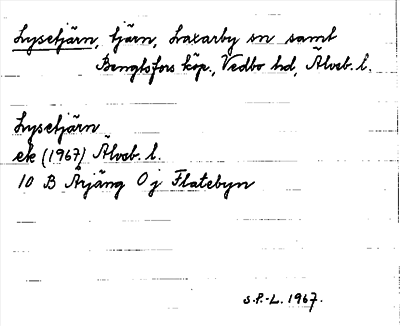 Lysetjärn, tjärn, Laxarby sn samt
Bengtsfors köp., Vedbo hd, Älvsb. l.
Lysetjärn
ek (1967) Älvsb. l.
10 B Årjäng 0 j Flatebyn
S.P.-L. 1967.